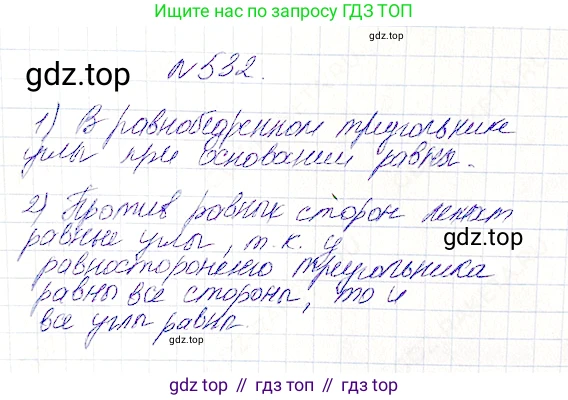 Ищите нас по запросу ГДЗ ТОП
gdz.top
№532.
1) В равнобедренном треугольнике
углы при основании равны.
2) Против равных сторон лежат
равные углы, т.к. у
gdz.top
равностороннего треугольника
равны все стороны, то и
все углы равны.
gdz.top
gdz top // гдз топ // gdz top